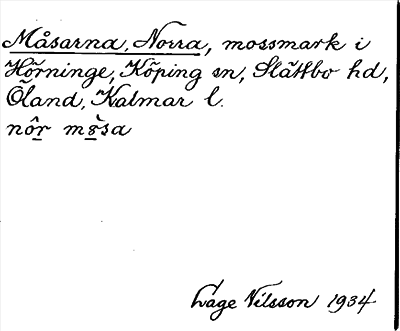 Måsarna, Norra, mossmark i
Hörninge, Köping sn, Slättbo hd,
Öland, Kalmar l.
nôr mo̊sa
Låge Nilsson 1934